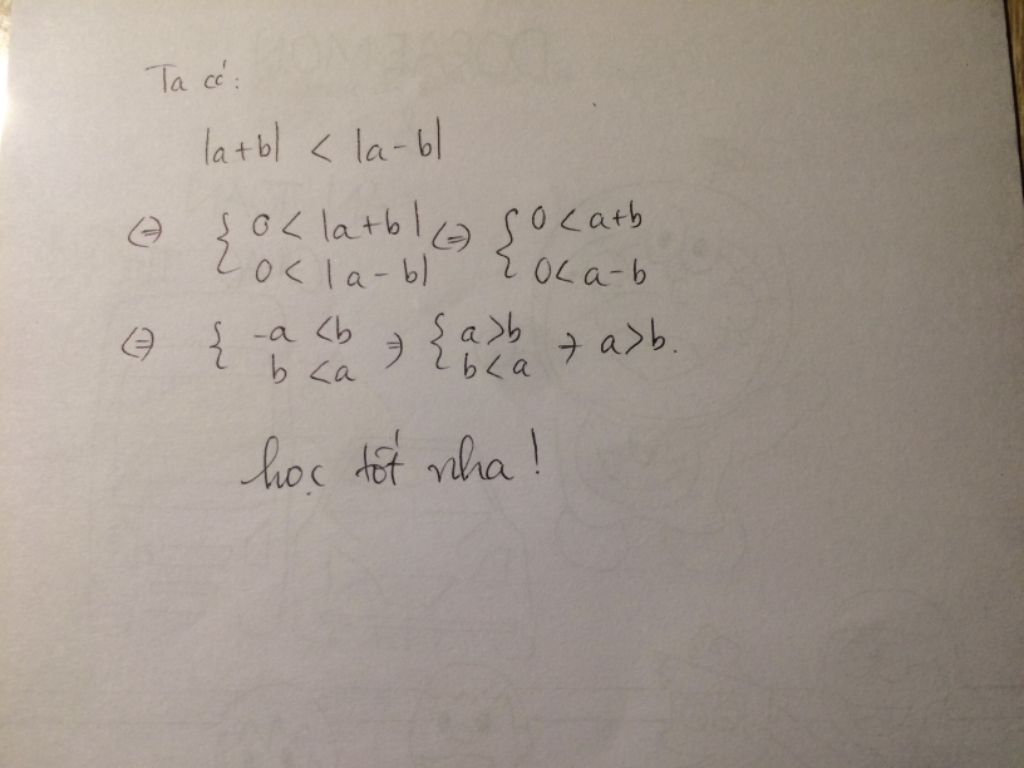 Ta có:
|a+b| < |a-b|
⇔ { 0 < |a+b| ⇔ { 0 < a+b
0 < |a-b| 0 < a-b
⇔ { -a < b ⇒ { a > b → a > b.
b < a b < a
học tốt nha !